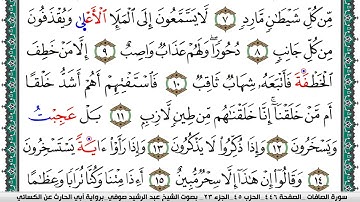 مِّن كُلِّ شَيْطَٰنٍ مَّارِدٍ ٧ لَّا يَسَّمَّعُونَ إِلَى ٱلْمَلَإِ ٱلْأَعْلَىٰ وَيُقْذَفُونَ
مِن كُلِّ جَانِبٍ ٨ دُحُورًا وَلَهُمْ عَذَابٌ وَاصِبٌ ٩ إِلَّا مَنْ خَطِفَ
ٱلْخَطْفَةَ فَأَتْبَعَهُۥ شِهَابٌ ثَاقِبٌ ١٠ فَٱسْتَفْتِهِمْ أَهُمْ أَشَدُّ خَلْقًا
أَم مَّنْ خَلَقْنَا إِنَّا خَلَقْنَٰهُم مِّن طِينٍ لَّازِبٍ ١١ بَلْ عَجِبْتُ
وَيَسْخَرُونَ ١٢ وَإِذَا ذُكِّرُوا۟ لَا يَذْكُرُونَ ١٣ وَإِذَا رَأَوْا۟ ءَايَةً يَسْتَسْخِرُونَ
١٤ وَقَالُوٓا۟ إِنْ هَٰذَآ إِلَّا سِحْرٌ مُّبِينٌ ١٥ أَءِذَا مِتْنَا وَكُنَّا تُرَابًا وَعِظَٰمًا
سورة الصافات . الصفحة ٤٤٦ . الحزب ٤٥ . الجزء ٢٣ . بصوت الشيخ عبد الرشيد صوفي . برواية أبي الحارث عن الكسائي